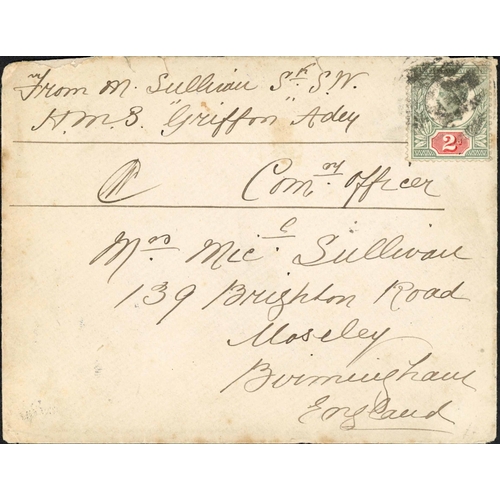 From M. Sullivan Sr. S.W.
H.M.S. "Griffon" Adey
Comy. Officer
Mrs Micl Sullivan
139 Brighton Road
Moseley
Birmingham
England
2d